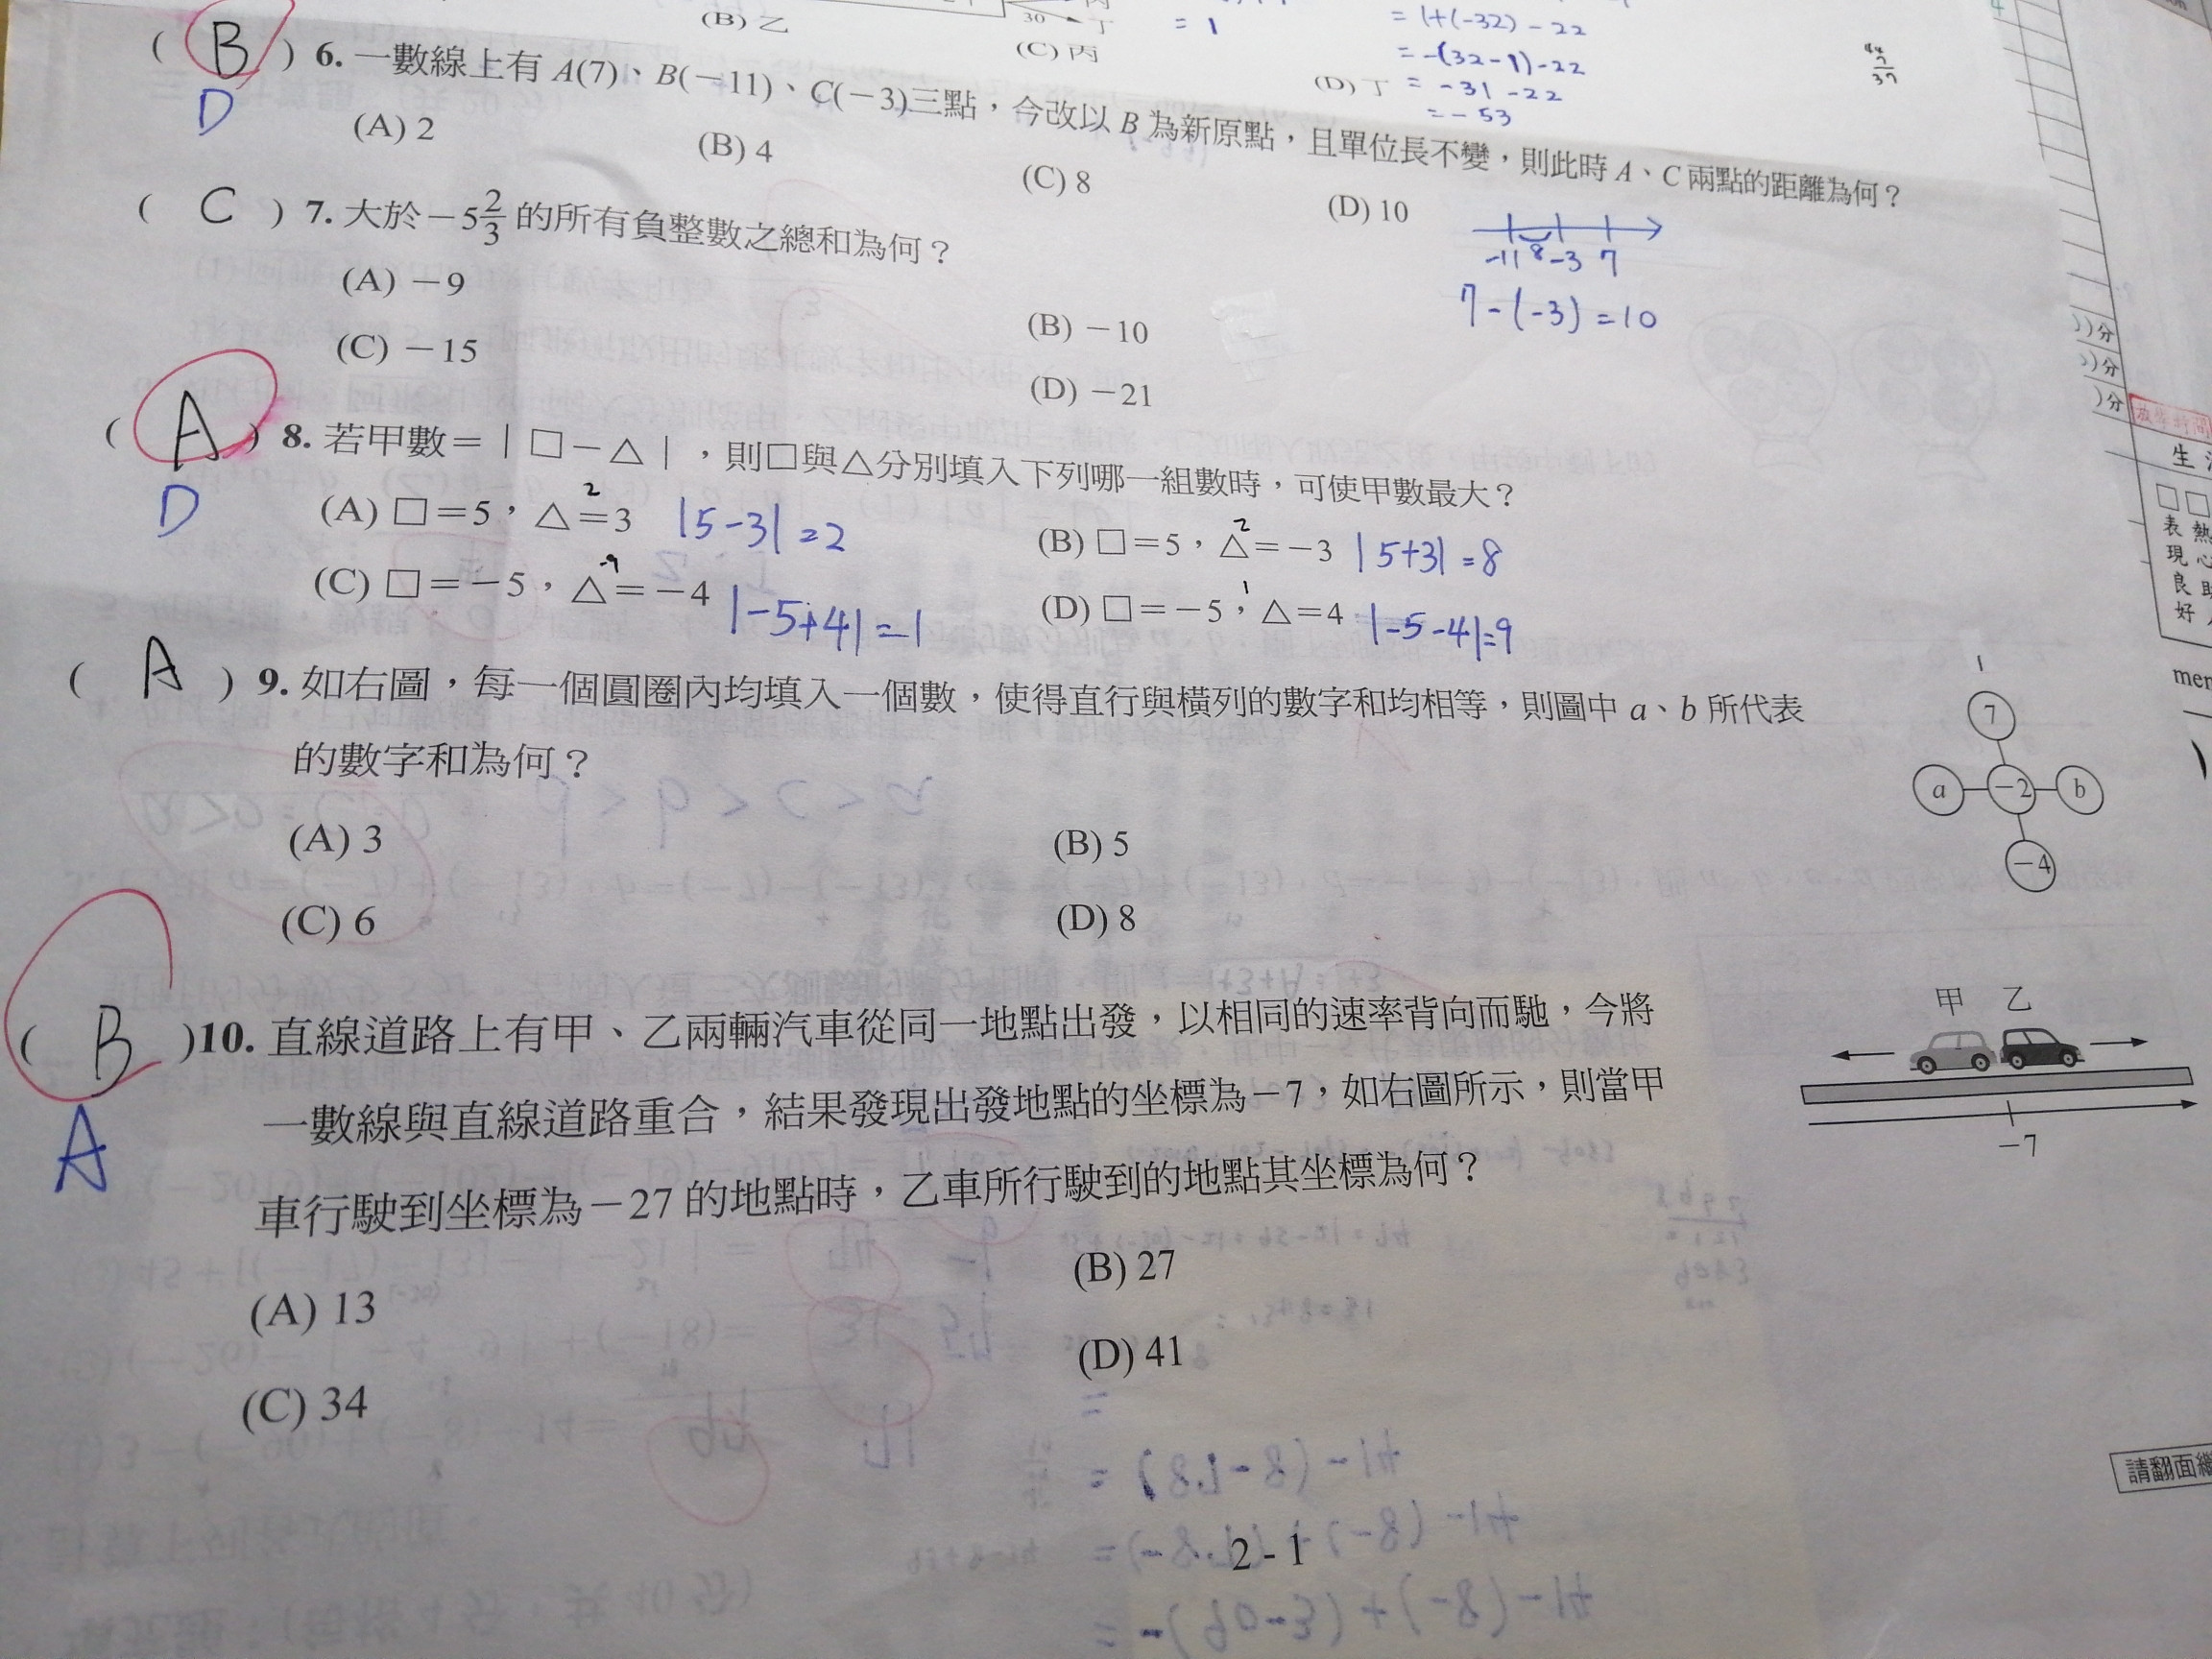 (B) 乙
30
丁
(C) 丙
= 1
= 1+(-32) - 22
= -(32-1)-22
(D) 丁 = -31 -22
= - 53
( B ) 6. 一數線上有 A(7)、B(-11)、C(-3)三點，今改以 B 為新原點，且單位長不變，則此時 A、C 兩點的距離為何？
D
(A) 2 (B) 4 (C) 8 (D) 10
-11 8 -3 7
7-(-3)=10
( C ) 7. 大於-5 2/3 的所有負整數之總和為何？
(A) -9 (B) -10
(C) -15 (D) -21
( A ) 8. 若甲數=|□-△|，則□與△分別填入下列哪一組數時，可使甲數最大？
D
2
(A) □=5，△=3 |5-3|=2
2
(B) □=5，△=-3 |5+3|=8
-9
(C) □=-5，△=-4 |-5+4|=1
1
(D) □=-5，△=4 |-5-4|=9
( A ) 9. 如右圖，每一個圓圈內均填入一個數，使得直行與橫列的數字和均相等，則圖中 a、b 所代表
的數字和為何？
1
7
a -2 b
-4
(A) 3 (B) 5
(C) 6 (D) 8
( B )10. 直線道路上有甲、乙兩輛汽車從同一地點出發，以相同的速率背向而馳，今將
A
一數線與直線道路重合，結果發現出發地點的坐標為-7，如右圖所示，則當甲
車行駛到坐標為-27 的地點時，乙車所行駛到的地點其坐標為何？
甲 乙
-7
(A) 13 (B) 27
(C) 34 (D) 41
2 - 1
請翻面繼
)分
)分
)分
放學時間
生
□□
表 熱
現 心
良 助
好